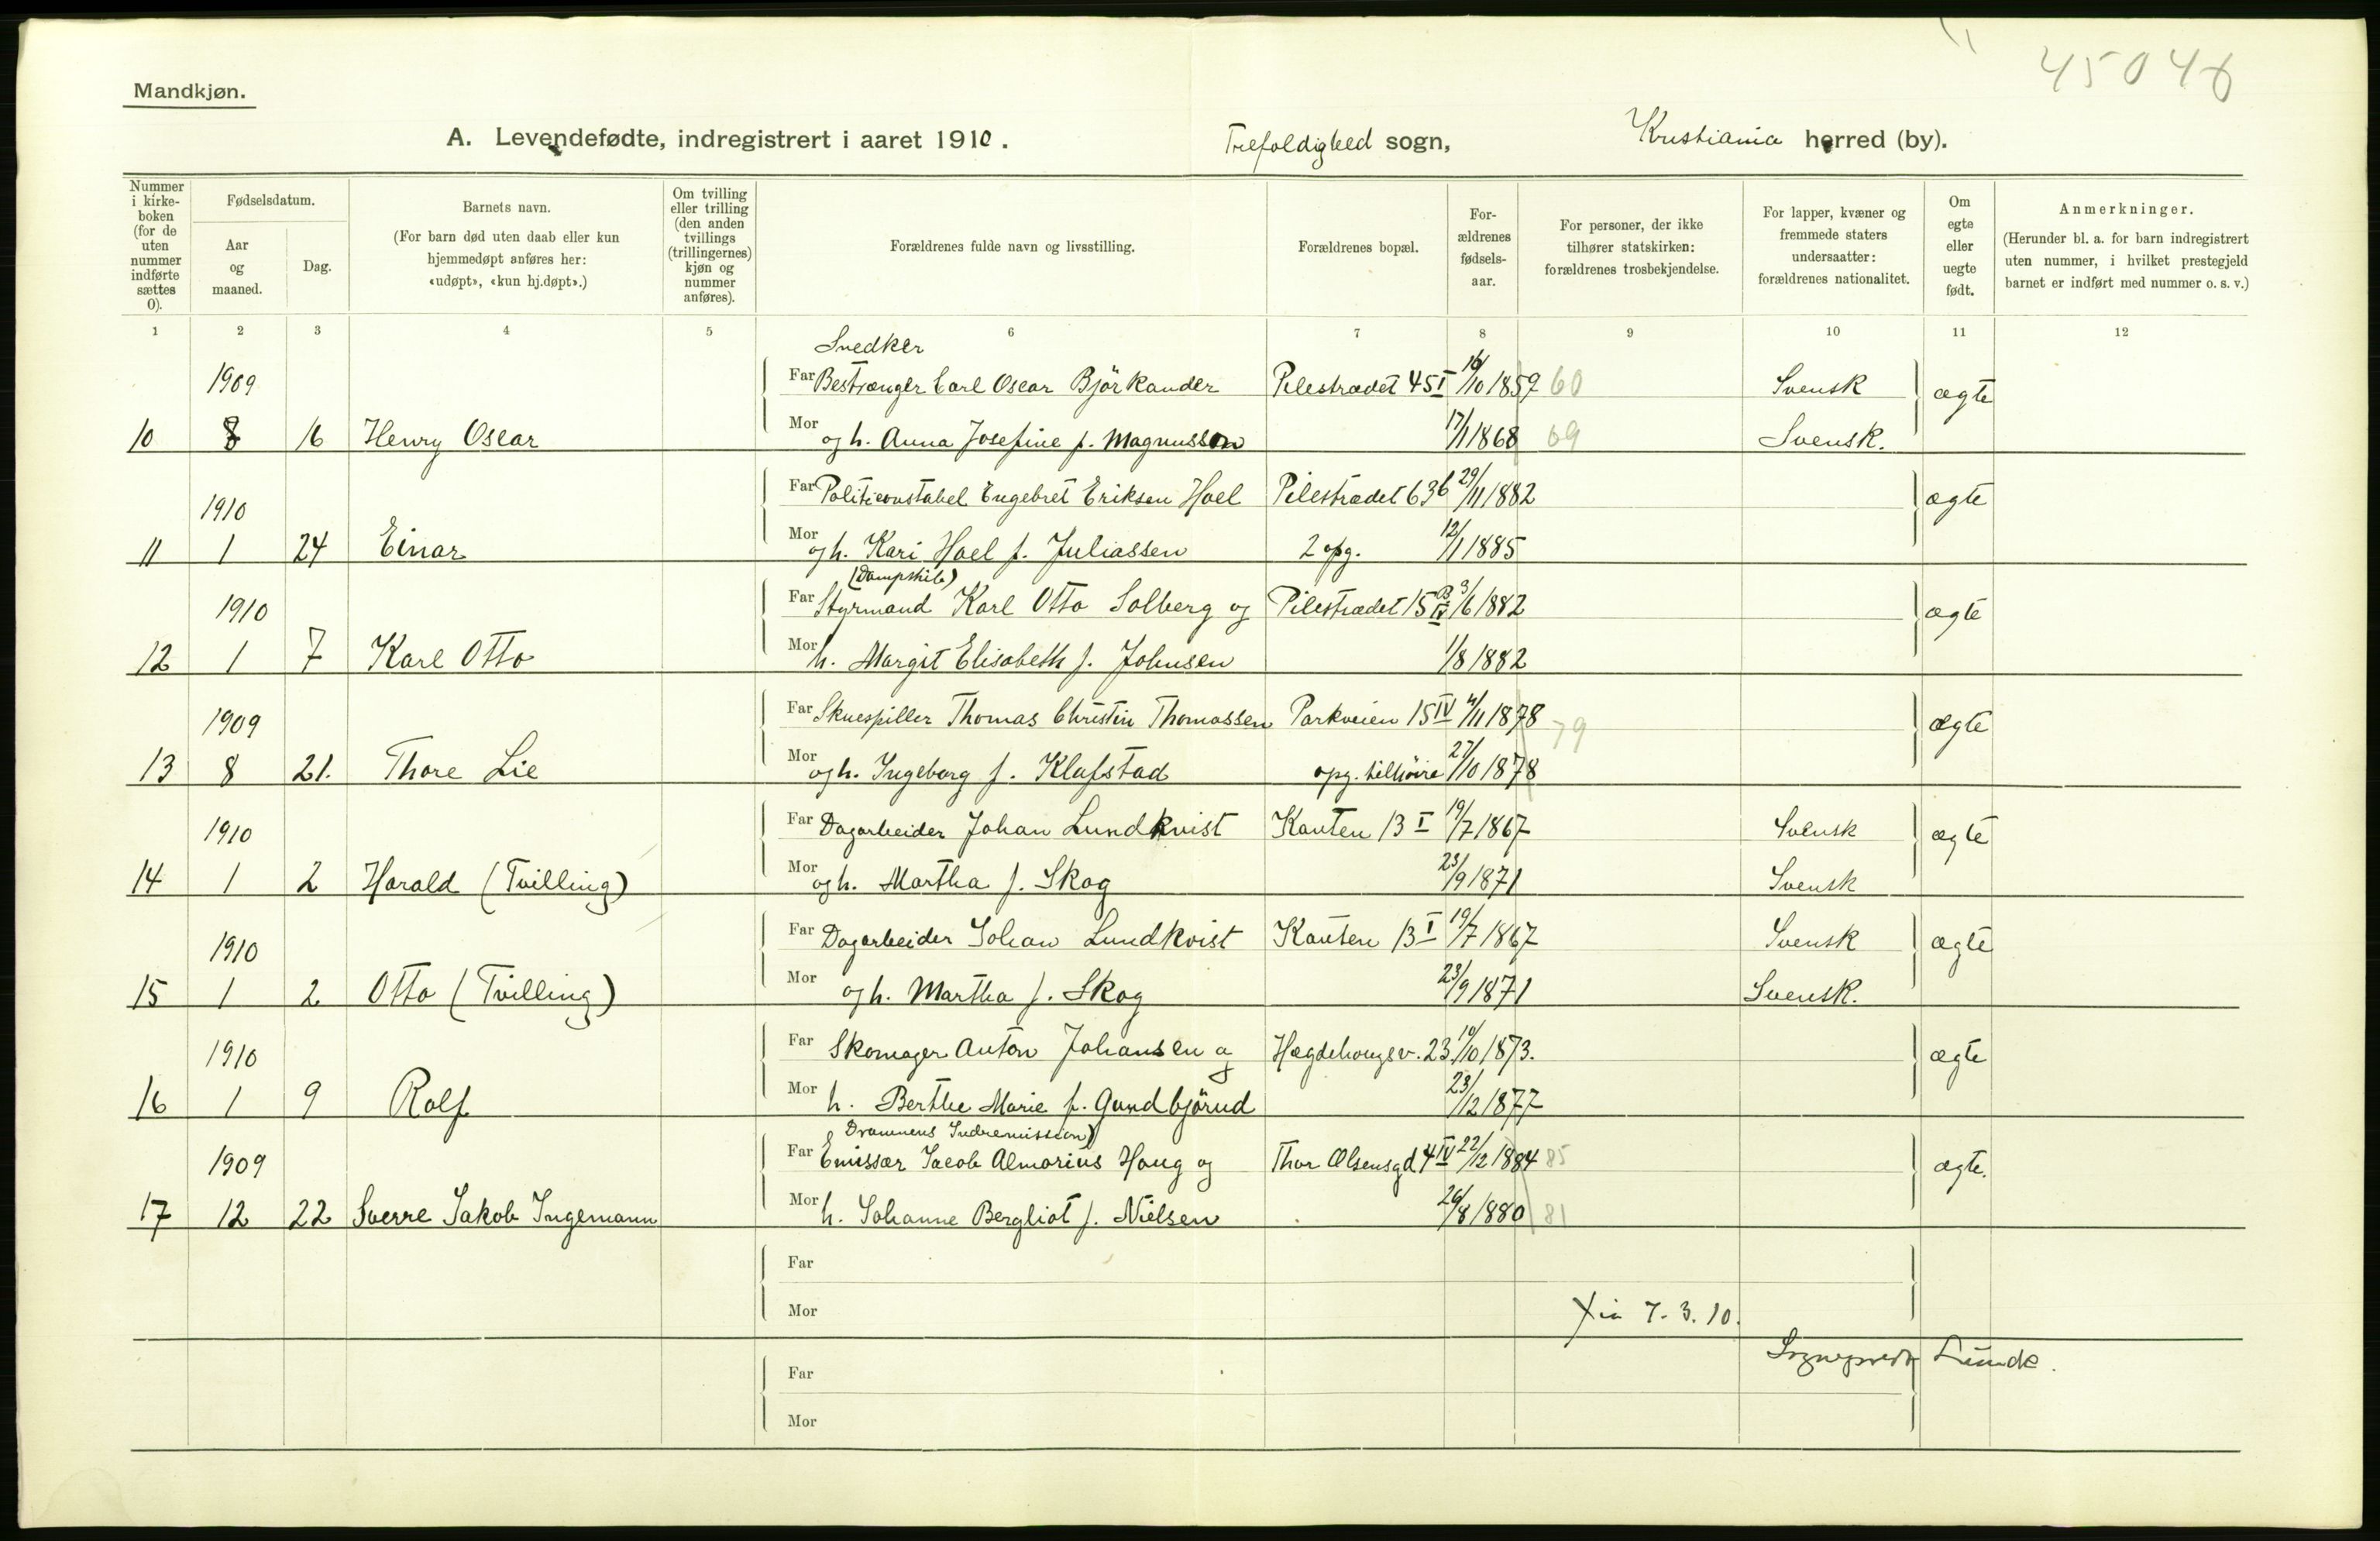 45046
Mandkjøn.
A. Levendefødte, indregistrert i aaret 1910. Trefoldighed sogn, Kristiania herred (by).
Nummer i kirkeboken (for de uten nummer indførte sættes 0).
Fødselsdatum.
Aar og maaned.
Dag.
Barnets navn.
(For barn død uten daab eller kun hjemmedøpt anføres her: «udøpt», «kun hj.døpt».)
Om tvilling eller trilling (den anden tvillings (trillingernes) kjøn og nummer anføres).
Forældrenes fulde navn og livsstilling.
Forældrenes bopæl.
Forældrenes fødselsaar.
For personer, der ikke tilhører statskirken: forældrenes trosbekjendelse.
For lapper, kvæner og fremmede staters undersaatter: forældrenes nationalitet.
Om egte eller uegte født.
Anmerkninger.
(Herunder bl. a. for barn indregistrert uten nummer, i hvilket prestegjeld barnet er indført med nummer o. s. v.)
1 2 3 4 5 6 7 8 9 10 11 12
Snedker
1909 Far Carl Oscar Björkander Pilestrædet 45 I 16/10 1859 60 Svensk ægte
10 8 16 Henry Oscar Mor og h. Anna Josefine f. Magnusson 17/1 1868 69 Svensk.
1910 Far Politiconstabel Engebret Eriksen Hoel Pilestrædet 63 b 29/11 1882 ægte
11 1 24 Einar Mor og h. Kari Hoel f. Juliassen 2 opg. 12/1 1885
(Dampskib)
1910 Far Styrmand Karl Otto Solberg og Pilestrædet 15 B IV 3/6 1882 ægte
12 1 7 Karl Otto Mor h. Margit Elisabeth f. Johnsen 1/8 1882
1909 Far Skuespiller Thomas Christin Thomassen Parkveien 15 IV 4/11 1878 79 ægte
13 8 21. Thore Lie Mor og h. Ingeborg f. Klafstad opg. tilhöire 27/10 1878
1910 Far Dagarbeider Johan Lundkvist Kanten 13 I 19/7 1867 Svensk ægte
14 1 2 Harald (Tvilling) Mor og h. Martha f. Skog 23/9 1871 Svensk
1910 Far Dagarbeider Johan Lundkvist Kanten 13 I 19/7 1867 Svensk ægte
15 1 2 Otto (Tvilling) Mor og h. Martha f. Skog 23/9 1871 Svensk.
1910 Far Skomager Anton Johansen og Hægdehougsv. 23. 19/10 1873. ægte
16 1 9 Rolf Mor h. Berthe Marie f. Gundbjörud 23/12 1877
Drammens Indremission)
1909 Far Emissær Jacob Almarius Haug og Thor Olsensgd 4 IV 22/12 1884 85 ægte.
17 12 22 Sverre Jakob Ingemann Mor h. Johanne Bergliot f. Nielsen 26/8 1880 81
Far
Mor Xia 7.3.10.
Sogneprest Lunde.
Far
Mor